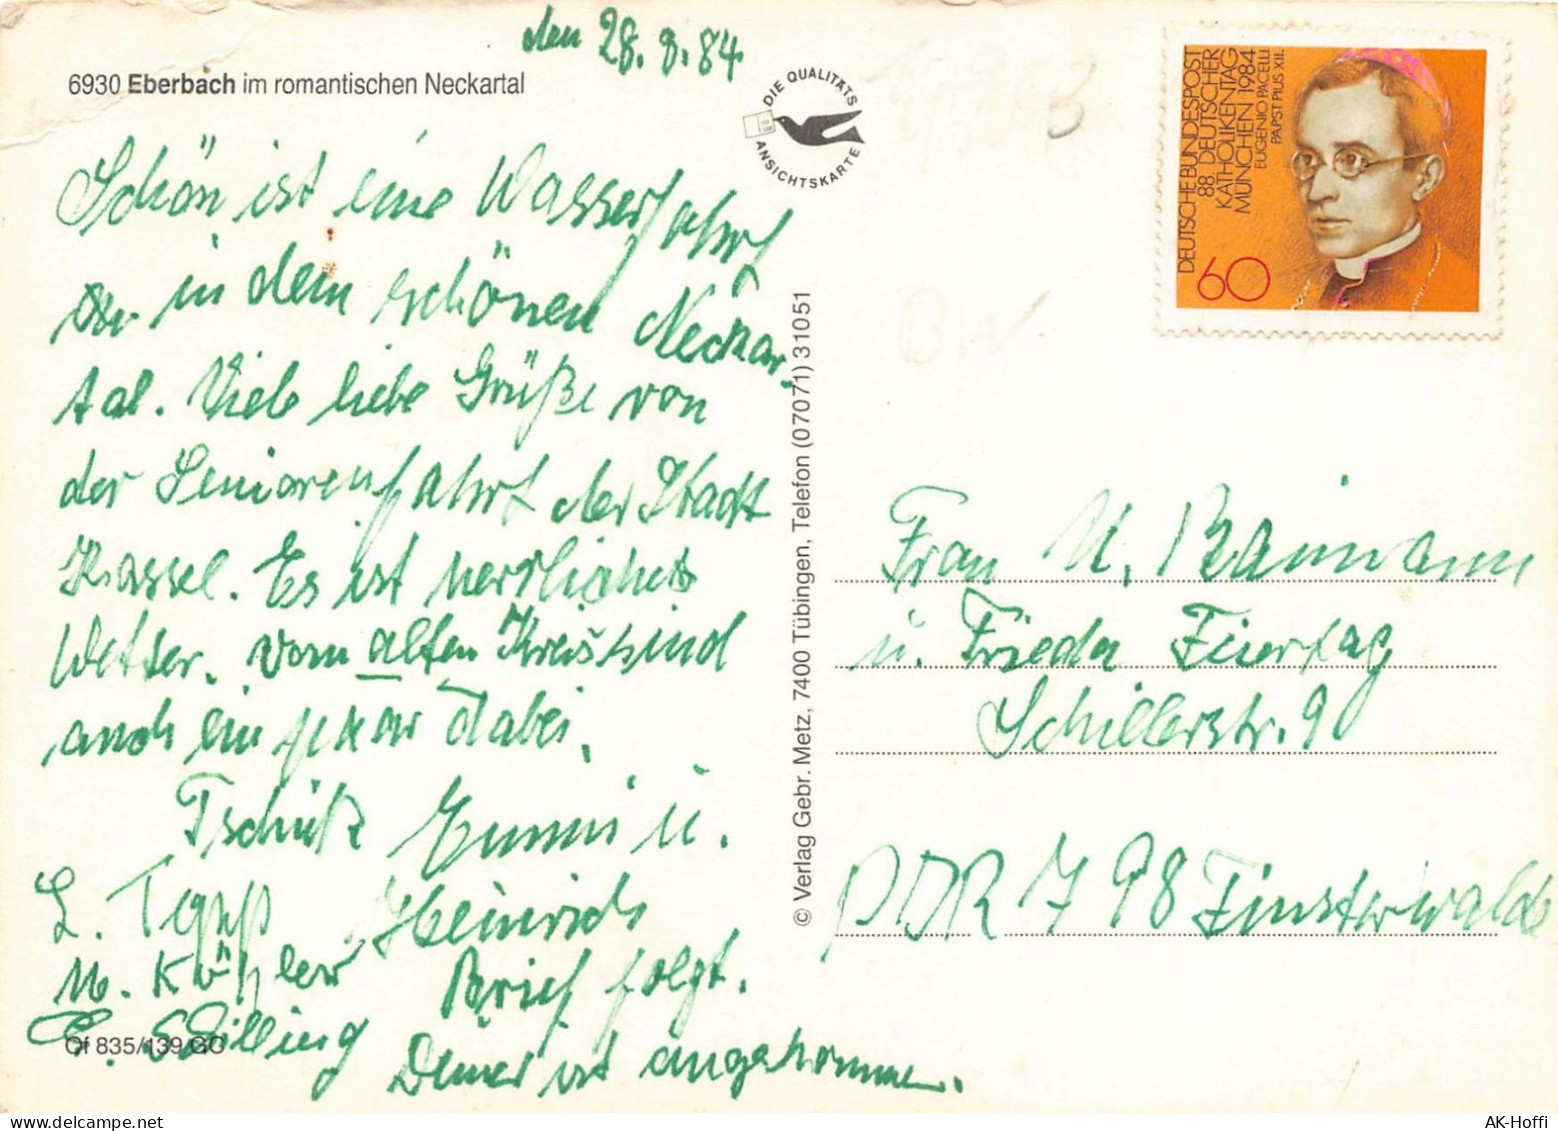 den 28.8.84
6930 Eberbach im romantischen Neckartal
DIE QUALITÄTS
ANSICHTSKARTE
Schön ist eine Wasserfahrt
in dem schönen Neckar-
tal. Viele liebe Grüße von
der Seniorenfahrt der Stadt
Kassel. Es ist herrliches
Wetter. Vom alten Kreis sind
auch ein paar dabei.
Tschüß Emmi u.
Heinrich
L.
M. Köhler
Brief folgt.
E. Schilling
Deiner ist angekommen.
Of 835/139 GC
© Verlag Gebr. Metz, 7400 Tübingen, Telefon (07071) 31051
DEUTSCHE BUNDESPOST
88. DEUTSCHER
KATHOLIKENTAG
MÜNCHEN 1984
EUGENIO PACELLI
PAPST PIUS XII.
60
Frau M. Baumann
u. Frieda Feiertag
Schillerstr. 9
DDR 798 Finsterwalde
AK-Hoffi